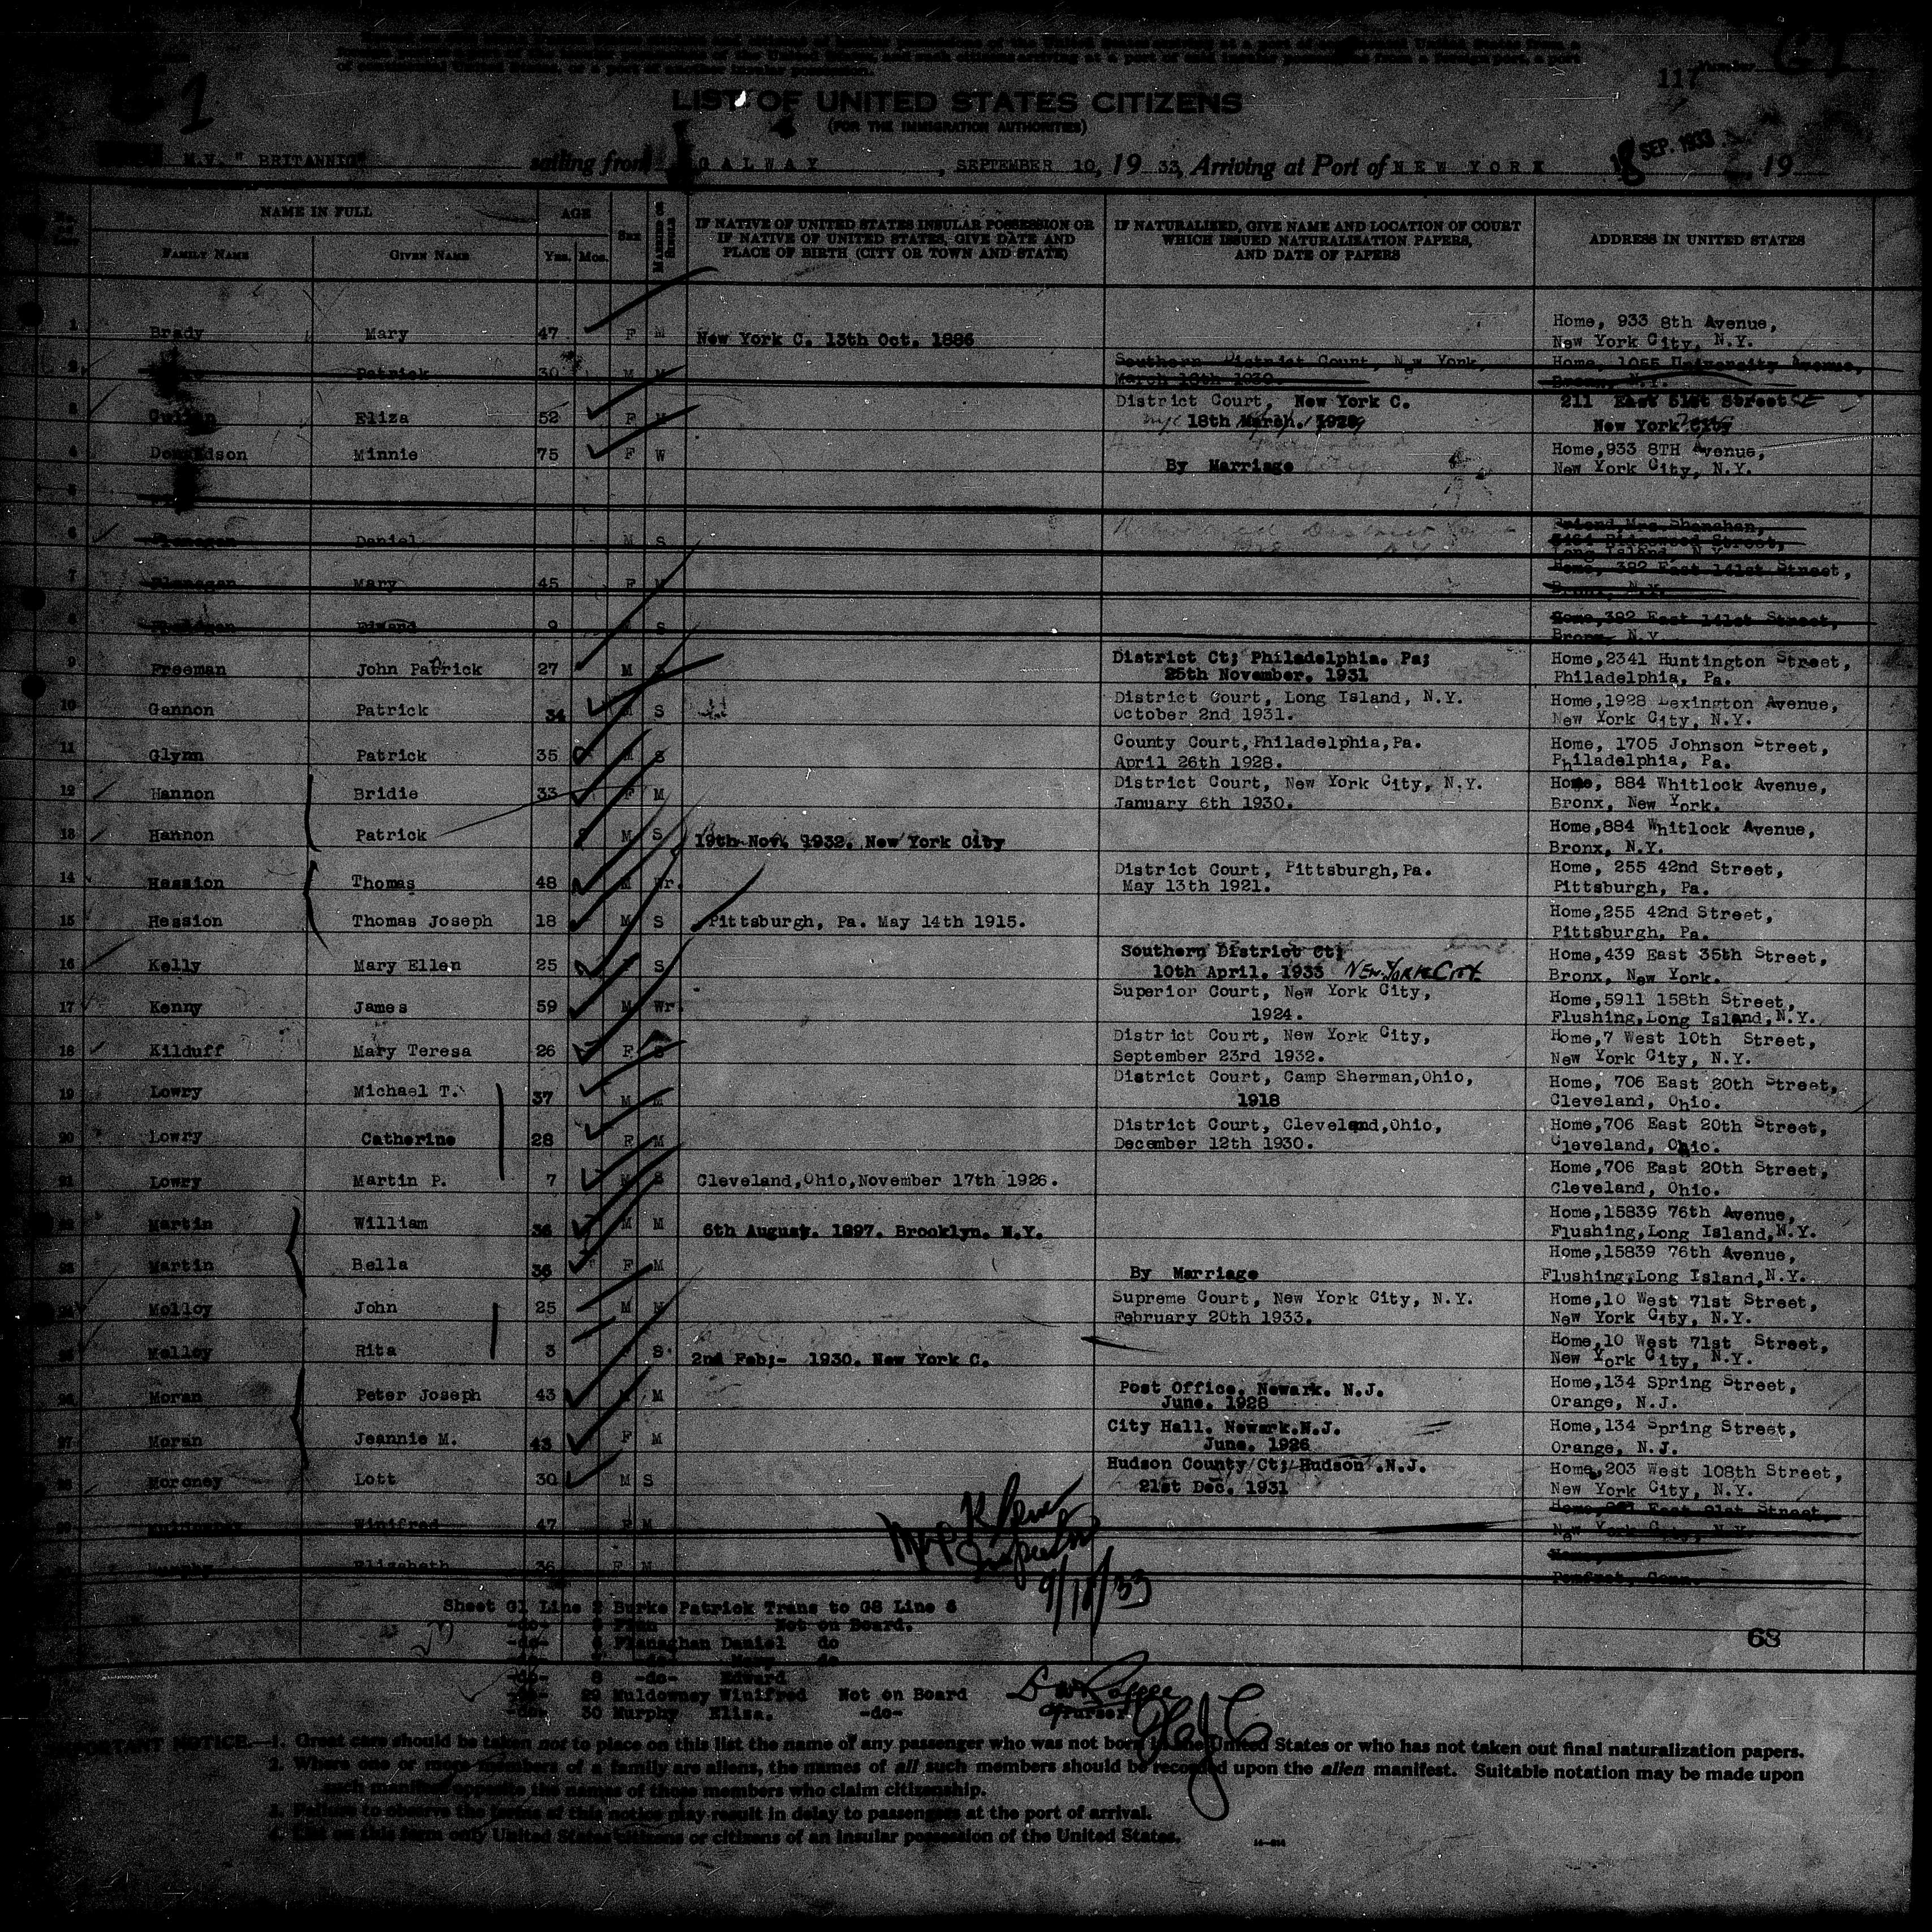 117 Number
1
LIST OF UNITED STATES CITIZENS
(FOR THE IMMIGRATION AUTHORITIES)
M.V. " BRITANNIC" sailing from GALWAY, SEPTEMBER 10, 19 33, Arriving at Port of NEW YORK 18 SEP. 1933 19
NAME IN FULL AGE Sex MARRIED OR SINGLE IF NATIVE OF UNITED STATES INSULAR POSSESSION OR IF NATIVE OF UNITED STATES, GIVE DATE AND PLACE OF BIRTH (CITY OR TOWN AND STATE) IF NATURALIZED, GIVE NAME AND LOCATION OF COURT WHICH ISSUED NATURALIZATION PAPERS, AND DATE OF PAPERS ADDRESS IN UNITED STATES
FAMILY NAME GIVEN NAME Yrs. Mos.
1 Brady Mary 47 F M New York C. 13th Oct. 1886 Home, 933 8th Avenue,
New York City, N.Y.
2 Patrick 30 M M Southern District Court, New York, Home, 1055 University Avenue,
March 18th 1930. Bronx, N.Y.
3 Eliza 52 F M District Court, New York C. 211 East 51st Street
18th March. 1929 New York City
4 Donaldson Minnie 75 F W By Marriage Home,933 8TH Avenue,
New York City, N.Y.
5
6 Flanagan Daniel M S Friend, Mrs. Shanahan,
Ridgewood Street,
Long Island, N.Y.
7 Flanagan Mary 45 F M Home, 392 East 141st Street,
Bronx, N.Y.
8 Flanagan Edward 9 S Home,392 East 141st Street,
Bronx, N.Y.
9 Freeman John Patrick 27 M S District Ct; Philadelphia. Pa; Home,2341 Huntington Street,
25th November. 1931 Philadelphia, Pa.
10 Gannon Patrick 34 M S District Court, Long Island, N.Y. Home,1928 Lexington Avenue,
October 2nd 1931. New York City, N.Y.
11 Glynn Patrick 35 M S County Court,Philadelphia,Pa. Home, 1705 Johnson Street,
April 26th 1928. Philadelphia, Pa.
12 Hannon Bridie 33 F M District Court, New York City, N.Y. Home, 884 Whitlock Avenue,
January 6th 1930. Bronx, New York.
13 Hannon Patrick M S 19th Nov. 1932. New York City Home,884 Whitlock Avenue,
Bronx, N.Y.
14 Hession Thomas 48 M Wr. District Court, Pittsburgh,Pa. Home, 255 42nd Street,
May 13th 1921. Pittsburgh, Pa.
15 Hession Thomas Joseph 18 M S Pittsburgh, Pa. May 14th 1915. Home,255 42nd Street,
Pittsburgh, Pa.
16 Kelly Mary Ellen 25 F S Southern District Ct; Home,439 East 35th Street,
10th April. 1933 NEW YORK CITY Bronx, New York.
17 Kenny James 59 M Wr. Superior Court, New York City, Home,5911 158th Street,
1924. Flushing,Long Island,N.Y.
18 Kilduff Mary Teresa 26 F S District Court, New York City, Home,7 West 10th Street,
September 23rd 1932. New York City, N.Y.
19 Lowry Michael T. 37 M M District Court, Camp Sherman,Ohio, Home, 706 East 20th Street,
1918 Cleveland, Ohio.
20 Lowry Catherine 28 F M District Court, Cleveland,Ohio, Home,706 East 20th Street,
December 12th 1930. Cleveland, Ohio.
21 Lowry Martin P. 7 M S Cleveland,Ohio,November 17th 1926. Home,706 East 20th Street,
Cleveland, Ohio.
22 Martin William 36 M M 6th August. 1897. Brooklyn. N.Y. Home,15839 76th Avenue,
Flushing,Long Island,N.Y.
23 Martin Bella 36 F M By Marriage Home,15839 76th Avenue,
Flushing,Long Island,N.Y.
24 Molloy John 25 M M Supreme Court, New York City, N.Y. Home,10 West 71st Street,
February 20th 1933. New York City, N.Y.
25 Molloy Rita 3 S 2nd Feb;- 1930. New York C. Home,10 West 71st Street,
New York City, N.Y.
26 Moran Peter Joseph 43 M M Post Office. Newark. N.J. Home,134 Spring Street,
June. 1928 Orange, N.J.
27 Moran Jeannie M. 43 F M City Hall. Newark.N.J. Home,134 Spring Street,
June. 1926 Orange, N.J.
28 Moroney Lott 30 M S Hudson County Ct; Hudson .N.J. Home,203 West 108th Street,
21st Dec. 1931 New York City, N.Y.
29 Muldowney Winifred 47 F M Home, East 21st Street,
New York City, N.Y.
30 Murphy Elizabeth 36 F M Home,
Pomfret, Conn.
Inspector
9/18/33
Sheet G1 Line 2 Burke Patrick Trans to G8 Line 6
-do- 5 Not on Board.
-do- 6 Flanaghan Daniel do
-do- 7 -do- Mary do
-do- 8 -do- Edward
-do- 29 Muldowney Winifred Not on Board
-do- 30 Murphy Eliza. -do-
Purser
68
IMPORTANT NOTICE.—1. Great care should be taken not to place on this list the name of any passenger who was not born in the United States or who has not taken out final naturalization papers.
2. Where one or more members of a family are aliens, the names of all such members should be recorded upon the alien manifest. Suitable notation may be made upon
such manifest opposite the names of those members who claim citizenship.
3. Failure to observe the terms of this notice may result in delay to passengers at the port of arrival.
4. List on this form only United States citizens or citizens of an insular possession of the United States.